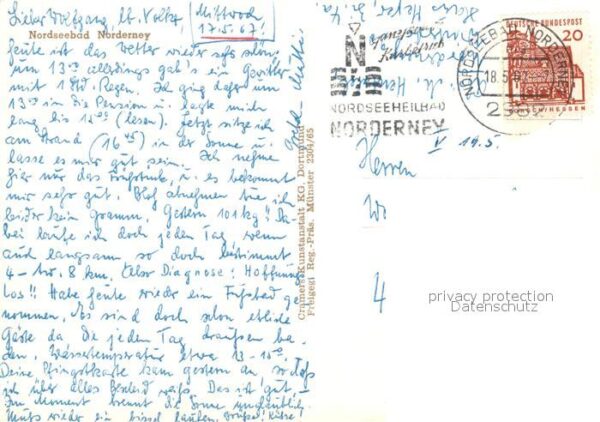 Lieber Wolfgang, lb. Volker, Mittwoch
17.5.67!
Nordseebad Norderney
heute ist das Wetter wieder sehr schön,
um 13.00 allerdings gab's ein Gewitter
mit 1 Std. Regen. Ich ging dafür um
13 in die Pension u. legte mich
lang bis (lesen). Jetzt sitze ich
am Strand (16 45) in der Sonne u.
lasse es mir gut sein. Ich nehme
hier nur das Frühstück, u. es bekommt
mir sehr gut. Bloß abnehmen tue ich
leider kein Gramm. Gestern 101 kg!! Da-
bei laufe ich doch jeden Tag wenn
auch langsam so doch bestimmt
4 – 8 km. Also Diagnose: Hoffnungs-
los!! Habe heute wieder ein Fußbad ge-
nommen. Es sind doch schon etliche
Gäste da die jeden Tag draußen ba-
den. Wassertemperatur etwa 13 -
Deine Pfingstkarte kam gestern an, so daß
ich über alles Bescheid weiß. Das ist gut. –
Im Moment brennt die Sonne unglaublich.
Muß wieder ein bissel laufen. Grüße! Küsse!
Cramers Kunstanstalt KG. Dortmund
Freigegi Reg.-Präs. Münster 2304/65
N
NORDSEEHEILBAD
NORDERNEY
NORDSEEBAD NORDERNEY
18.5.67
2982
DEUTSCHE BUNDESPOST
20
HESSEN
Herren
V 19.5.
W
4
privacy protection
Datenschutz